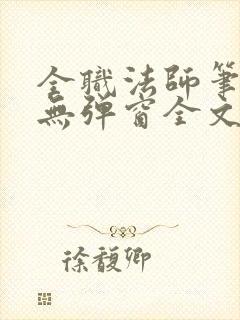 全職法師筆
無彈窗全文
徐馥卿